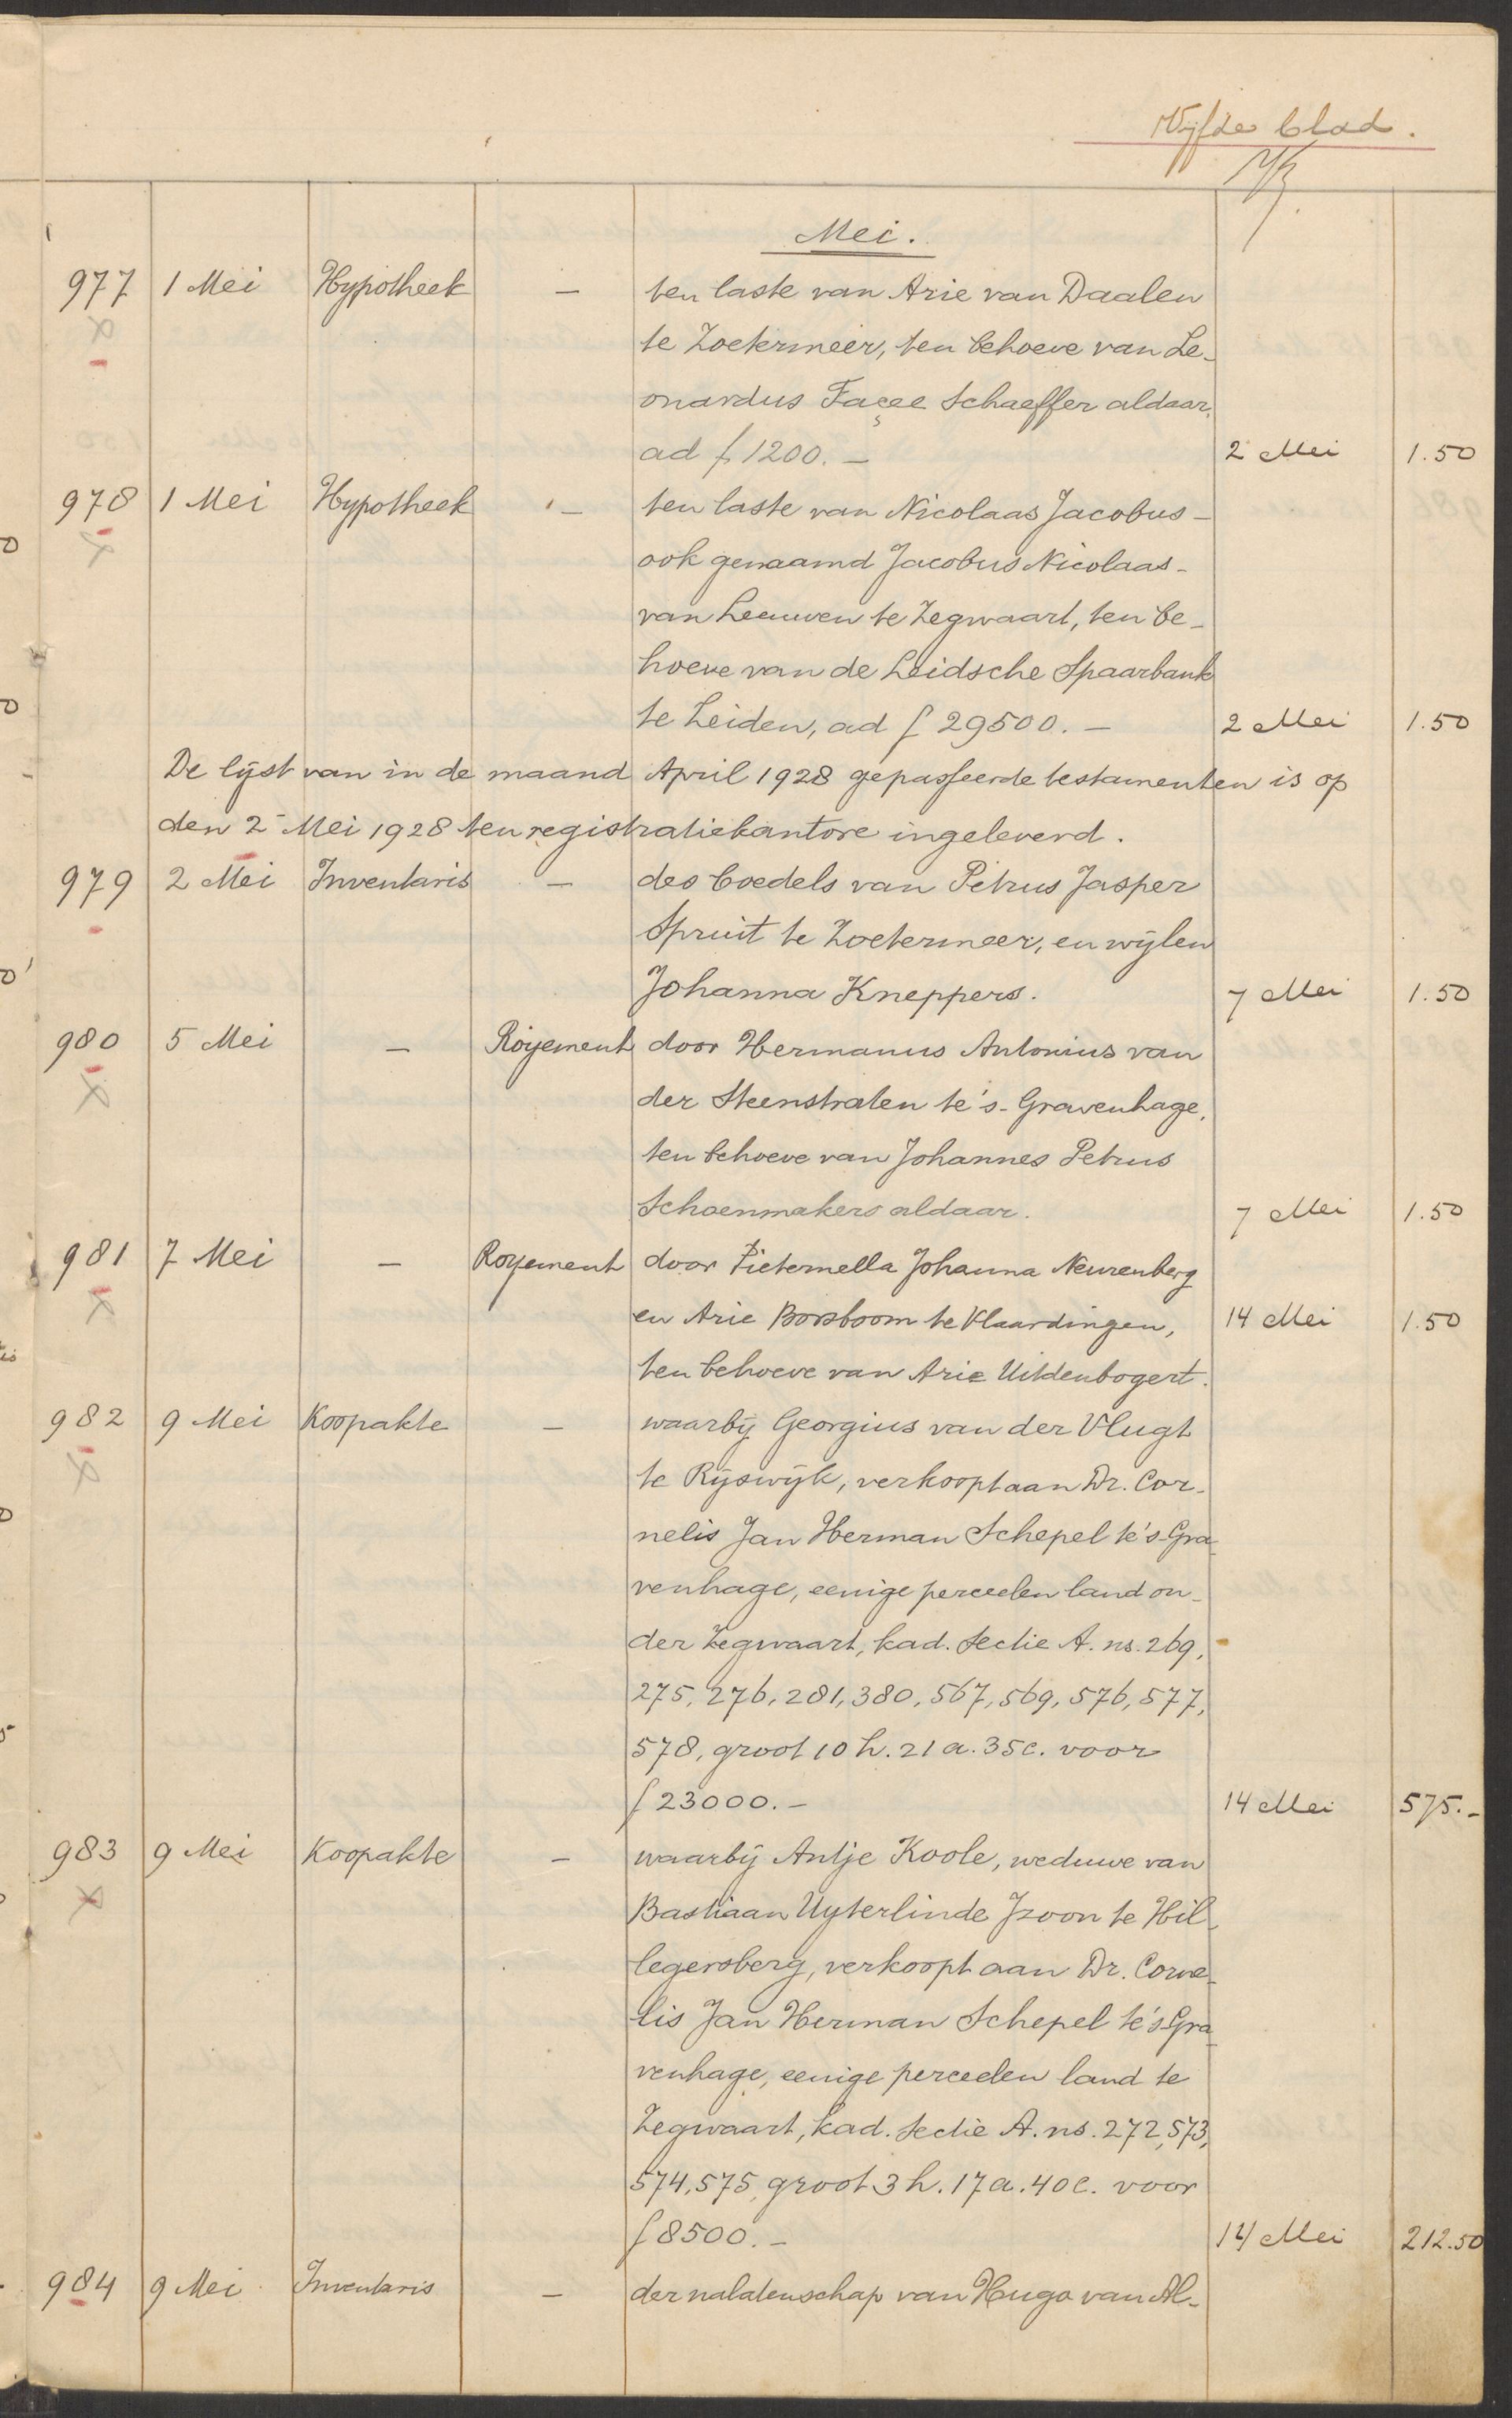 Vijfde blad.
Mei.
977 1 Mei Hypotheek — ten laste van Arie van Daalen
te Zoetermeer, ten behoeve van Le-
onardus Façee Schaeffer aldaar,
ad f 1200.— 2 Mei 1.50
978 1 Mei Hypotheek — ten laste van Nicolaas Jacobus -
ook genaamd Jacobus Nicolaas -
van Leeuwen te Zegwaart, ten be-
hoeve van de Leidsche Spaarbank
te Leiden, ad f 29500.— 2 Mei 1.50
De lijst van in de maand April 1928 gepasseerde testamenten is op
den 2 Mei 1928 ten registratiekantore ingeleverd.
979 2 Mei Inventaris — des boedels van Petrus Jasper
Spruit te Zoetermeer, en wijlen
Johanna Kneppers. 7 Mei 1.50
980 5 Mei — Royement door Hermanus Antonius van
der Steenstraten te 's-Gravenhage,
ten behoeve van Johannes Petrus
Schoenmakers aldaar. 7 Mei 1.50
981 7 Mei — Royement door Pieternella Johanna Neurenberg
en Arie Borsboom te Vlaardingen, 14 Mei 1.50
ten behoeve van Arie Uitdenbogert.
982 9 Mei Koopakte — waarbij Georgius van der Vlugt
te Rijswijk, verkoopt aan Dr. Cor-
nelis Jan Herman Schepel te 's-Gra-
venhage, eenige perceelen land on-
der Zegwaart, kad. sectie A. ns. 269,
275, 276, 281, 380, 567, 569, 576, 577,
578, groot 10 h. 21 a. 35 c. voor
f 23000.— 14 Mei 575.-
983 9 Mei Koopakte — waarbij Antje Koole, weduwe van
Bastiaan Uyterlinde Jzoon te Hil-
legersberg, verkoopt aan Dr. Corne-
lis Jan Herman Schepel te 's-Gra-
venhage, eenige perceelen land te
Zegwaart, kad. sectie A. ns. 272, 573,
574, 575, groot 3 h. 17 a. 40 c. voor
f 8500.— 14 Mei 212.50
984 9 Mei Inventaris — der nalatenschap van Hugo van Al-